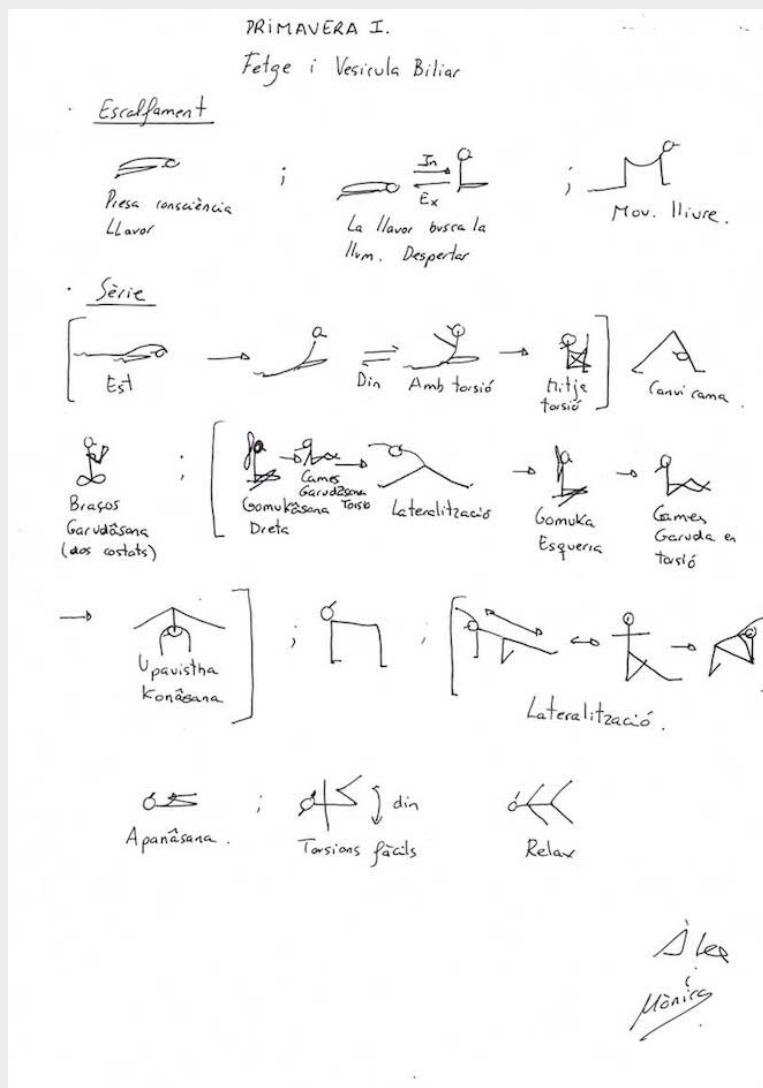 PRIMAVERA I.
Fetge i Vesicula Biliar
· Escalfament
; In ;
Ex
Presa consciència
Llavor
La llavor busca la
llum. Despertar
Mov. lliure.
· Sèrie
Est
Din
Amb torsió
Mitja
torsió
Canvi cama.
;
Braços
Garudâsana
(dos costats)
Gomukâsana
Dreta
Cames
Garudâsana
Torsió
Lateralització
Gomuka
Esquerra
Cames
Garuda en
torsió
; ;
Upavistha
Konâsana
Lateralització.
; din
Apanâsana.
Torsions fàcils
Relax
Àlex
i
Mònica